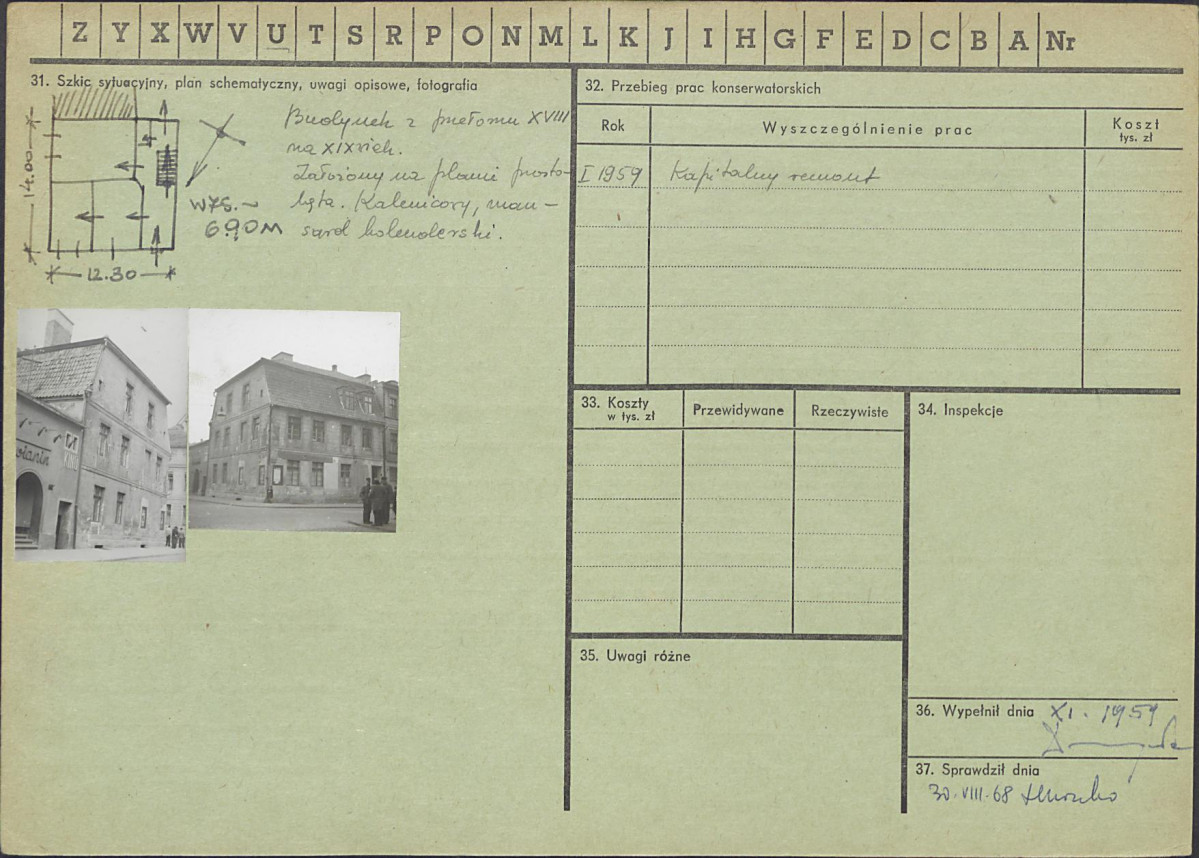 Z Y X W V U T S R P O N M L K J I H G F E D C B A Nr
31. Szkic sytuacyjny, plan schematyczny, uwagi opisowe, fotografia
14.00
12.30
WYS. ~
6.90M
Budynek z przełomu XVIII
na XIX wiek.
Założony na planie prosto-
kąta. Kalenicowy, man-
sard holenderski.
KINO
32. Przebieg prac konserwatorskich
Rok
Wyszczególnienie prac
Koszt
tys. zł
I 1959 Kapitalny remont
33. Koszty
w tys. zł
Przewidywane
Rzeczywiste
34. Inspekcje
35. Uwagi różne
36. Wypełnił dnia XI. 1959
37. Sprawdził dnia
30.VIII.68